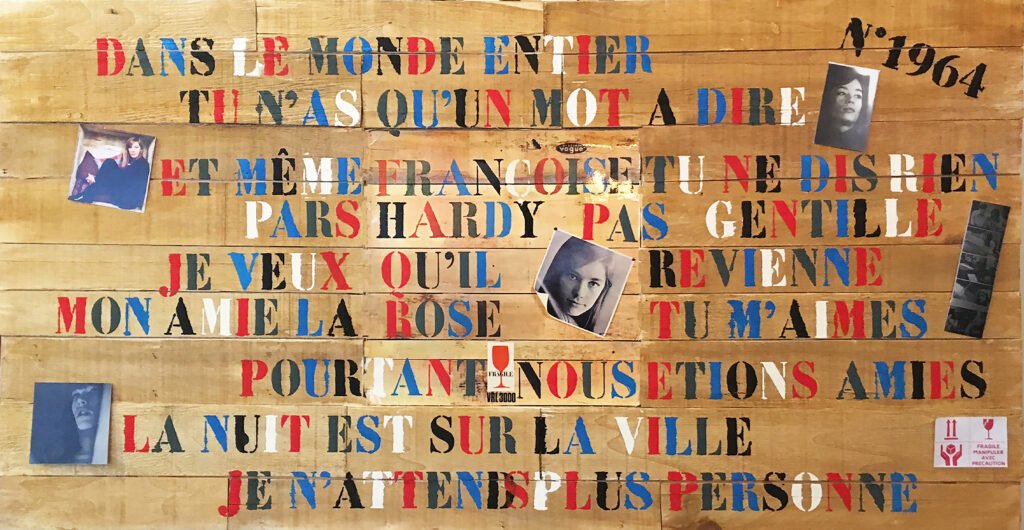 N°1964
DANS LE MONDE ENTIER
TU N'AS QU'UN MOT A DIRE
vogue
ET MÊME FRANCOISE TU NE DIS RIEN
PARS HARDY PAS GENTILLE
JE VEUX QU'IL REVIENNE
MON AMIE LA ROSE TU M'AIMES
POURTANT NOUS ETIONS AMIES
FRAGILE
VRL 3000
LA NUIT EST SUR LA VILLE
FRAGILE
MANIPULER
AVEC
PRECAUTION
JE N'ATTENDS PLUS PERSONNE